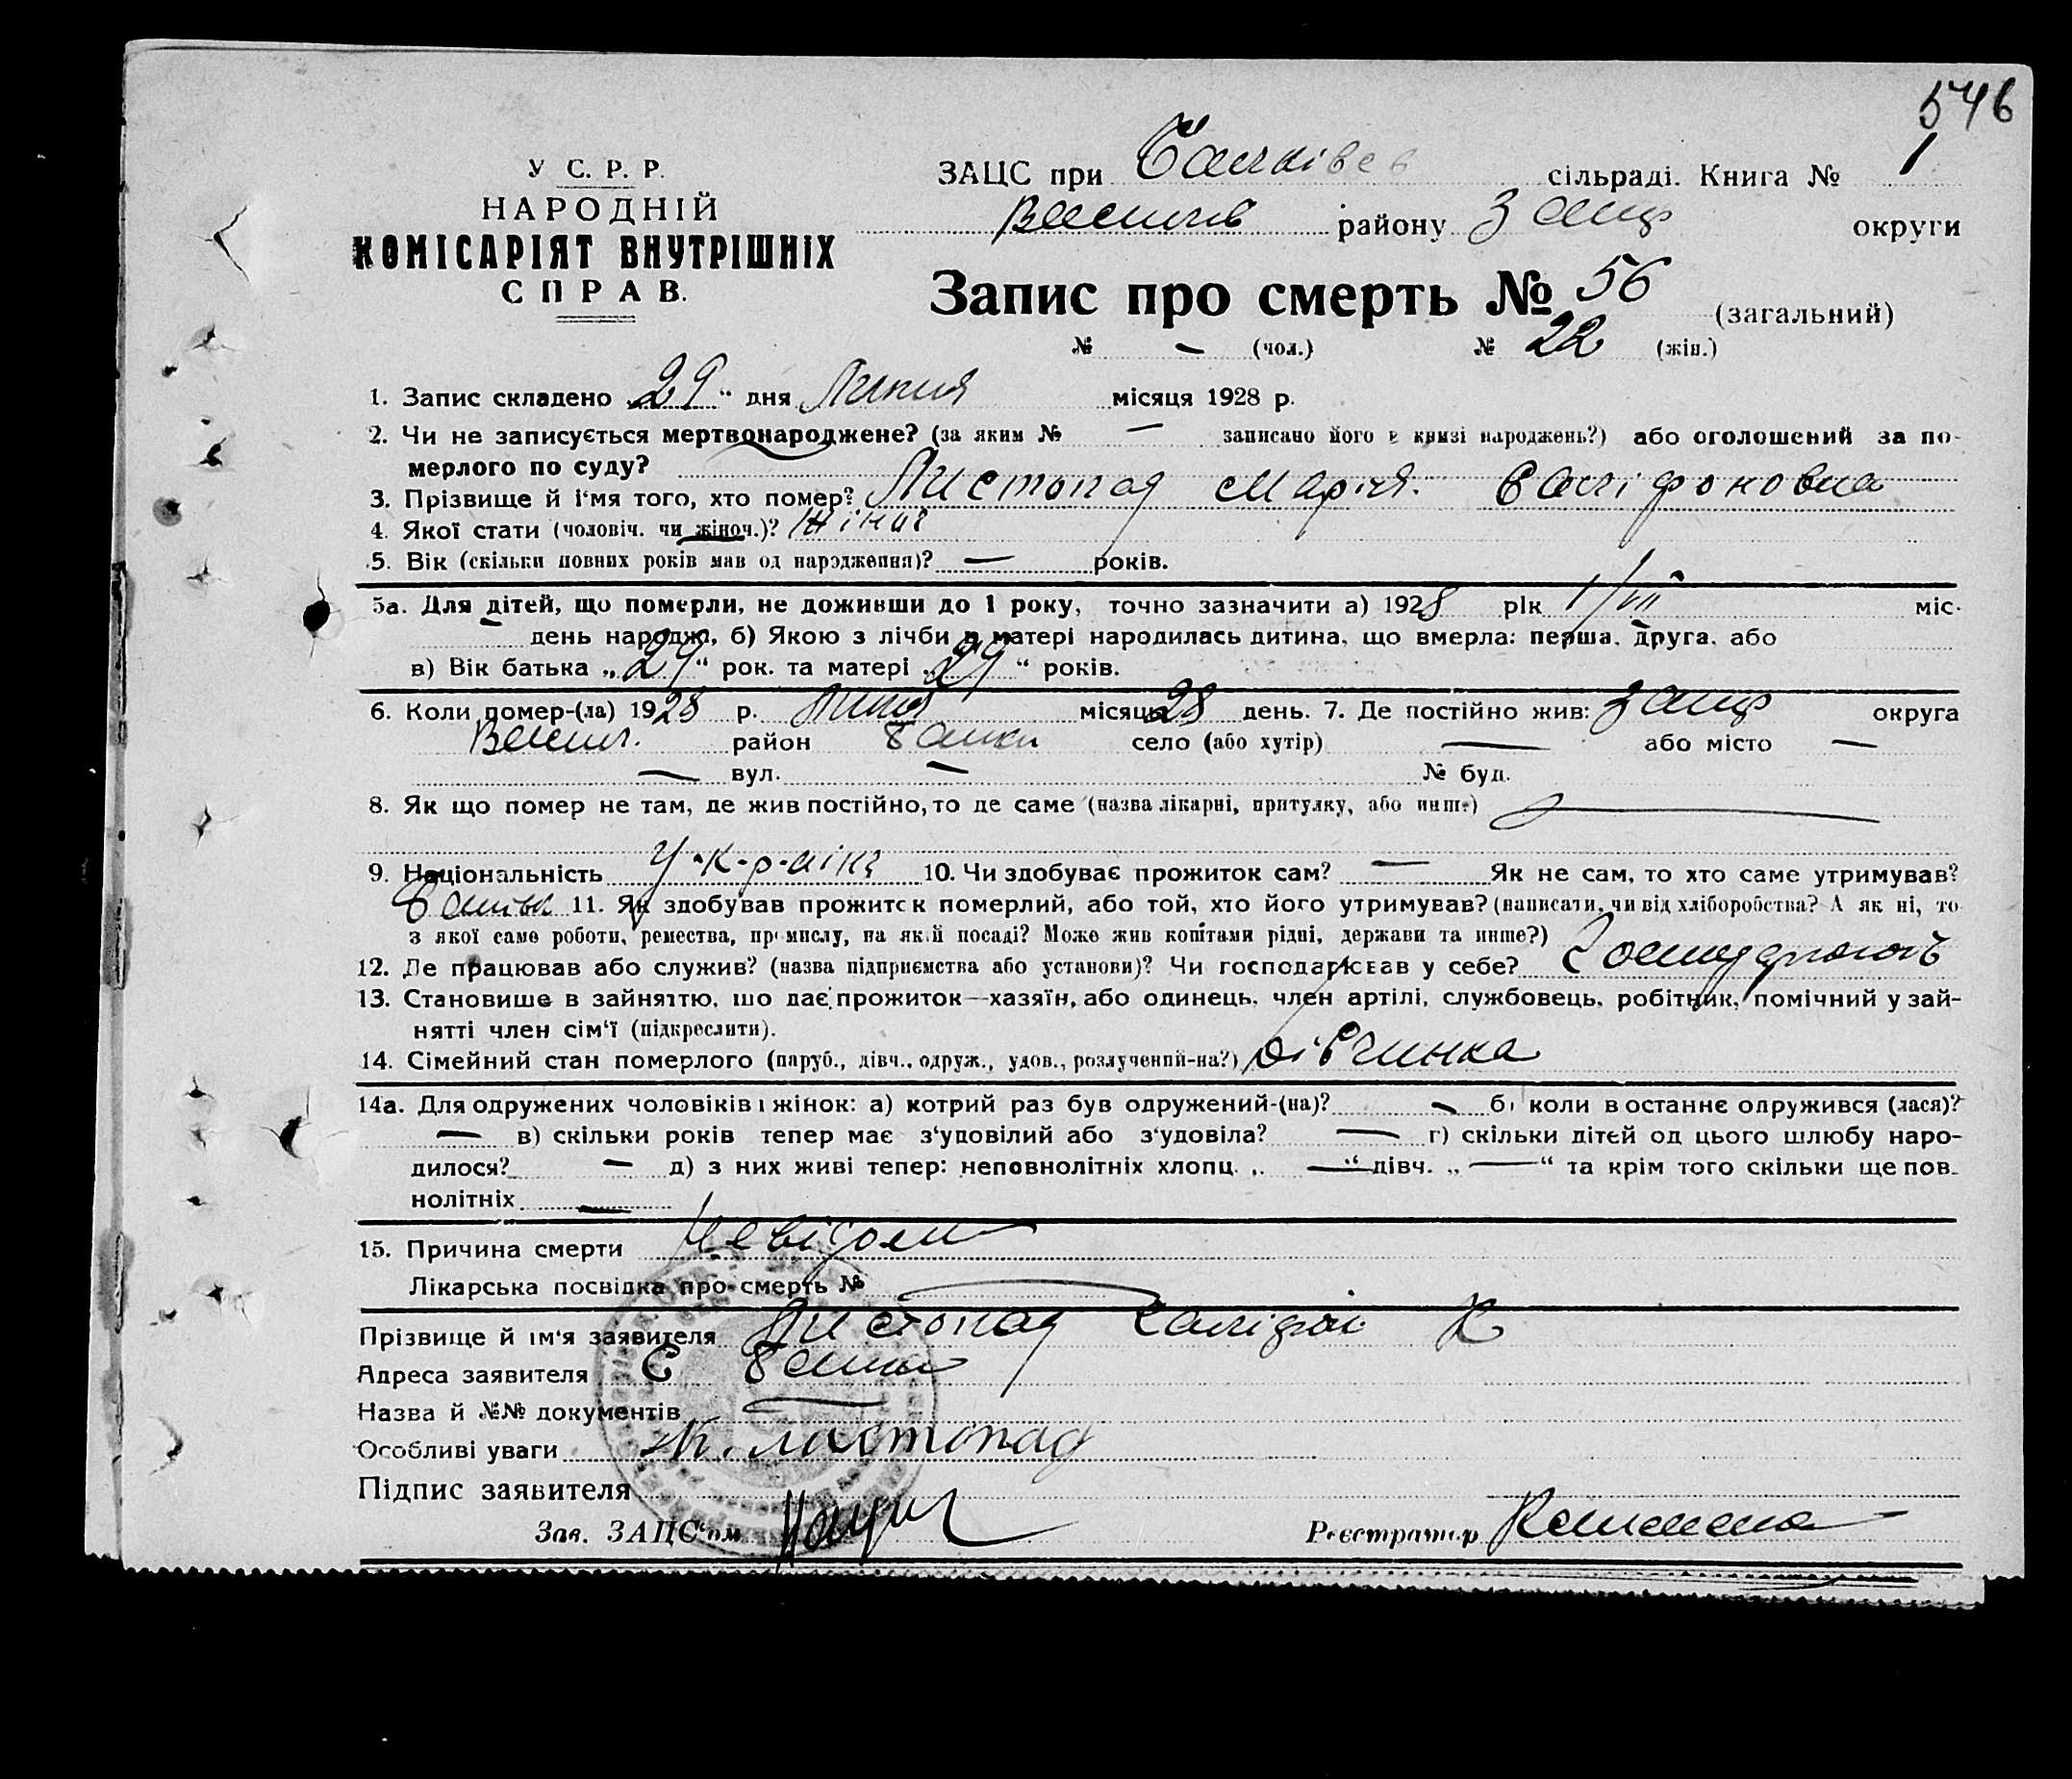 546
У С. Р. Р.
НАРОДНІЙ
КОМІСАРІЯТ ВНУТРІШНІХ
СПРАВ.
ЗАЦС при сільраді. Книга № 1
району Запор округи
Запис про смерть № 56 (загальний)
№ — (чол.) № 22 (жін.)
1. Запис складено „29“ дня Липня місяця 1928 р.
2. Чи не записується мертвонароджене? (за яким № — записано його в книзі народжень?) або оголошений за по-
мерлого по суду?
3. Прізвище й і‘мя того, хто помер? Листопад Марія
4. Якої стати (чоловіч. чи жіноч.)? жіноч
5. Вік (скільки повних років мав од народження)? — років.
5а. Для дітей, що померли, не доживши до 1 року, точно зазначити а) 1928 рік 1/VII міс.
день народж., б) Якою з лічби в матері народилась дитина, що вмерла: перша, друга, або
в) Вік батька „29“ рок. та матері „29“ років.
6. Коли помер-(ла) 1928 р. Липня місяця 28 день. 7. Де постійно жив: Запор округа
район Балки село (або хутір) — або місто —
— вул. — № буд.
8. Як що помер не там, де жив постійно, то де саме (назва лікарні, притулку, або инше) —
9. Національність 10. Чи здобуває прожиток сам? — Як не сам, то хто саме утримував?
11. Як здобував прожиток померлий, або той, хто його утримував? (написати, чи від хліборобства? А як ні, то
з якої саме роботи, ремества, промислу, на якій посаді? Може жив коштами рідні, держави та инше?)
12. Де працював або служив? (назва підприємства або установи)? Чи господарював у себе?
13. Становище в зайняттю, що дає прожиток—хазяїн, або одинець, член артілі, службовець, робітник, помічний у зай-
нятті член сім‘ї (підкреслити).
14. Сімейний стан померлого (паруб., дівч., одруж., удов., розлучений-на?) дівчинка
14а. Для одружених чоловіків і жінок: а) котрий раз був одружений-(на)? — б) коли в останнє одружився (лася)?
— в) скільки років тепер має з‘удовілий або з‘удовіла? — г) скільки дітей од цього шлюбу наро-
дилося? — д) з них живі тепер: неповнолітніх хлопц. „—“ дівч. „—“ та крім того скільки ще пов-
нолітніх —
15. Причина смерти Невідом
Лікарська посвідка про смерть № —
Прізвище й ім‘я заявителя Листопад
Адреса заявителя С Балки
Назва й №№ документів —
Особливі уваги Листопад
Підпис заявителя
Зав. ЗАЦС‘ом
Реєстратор